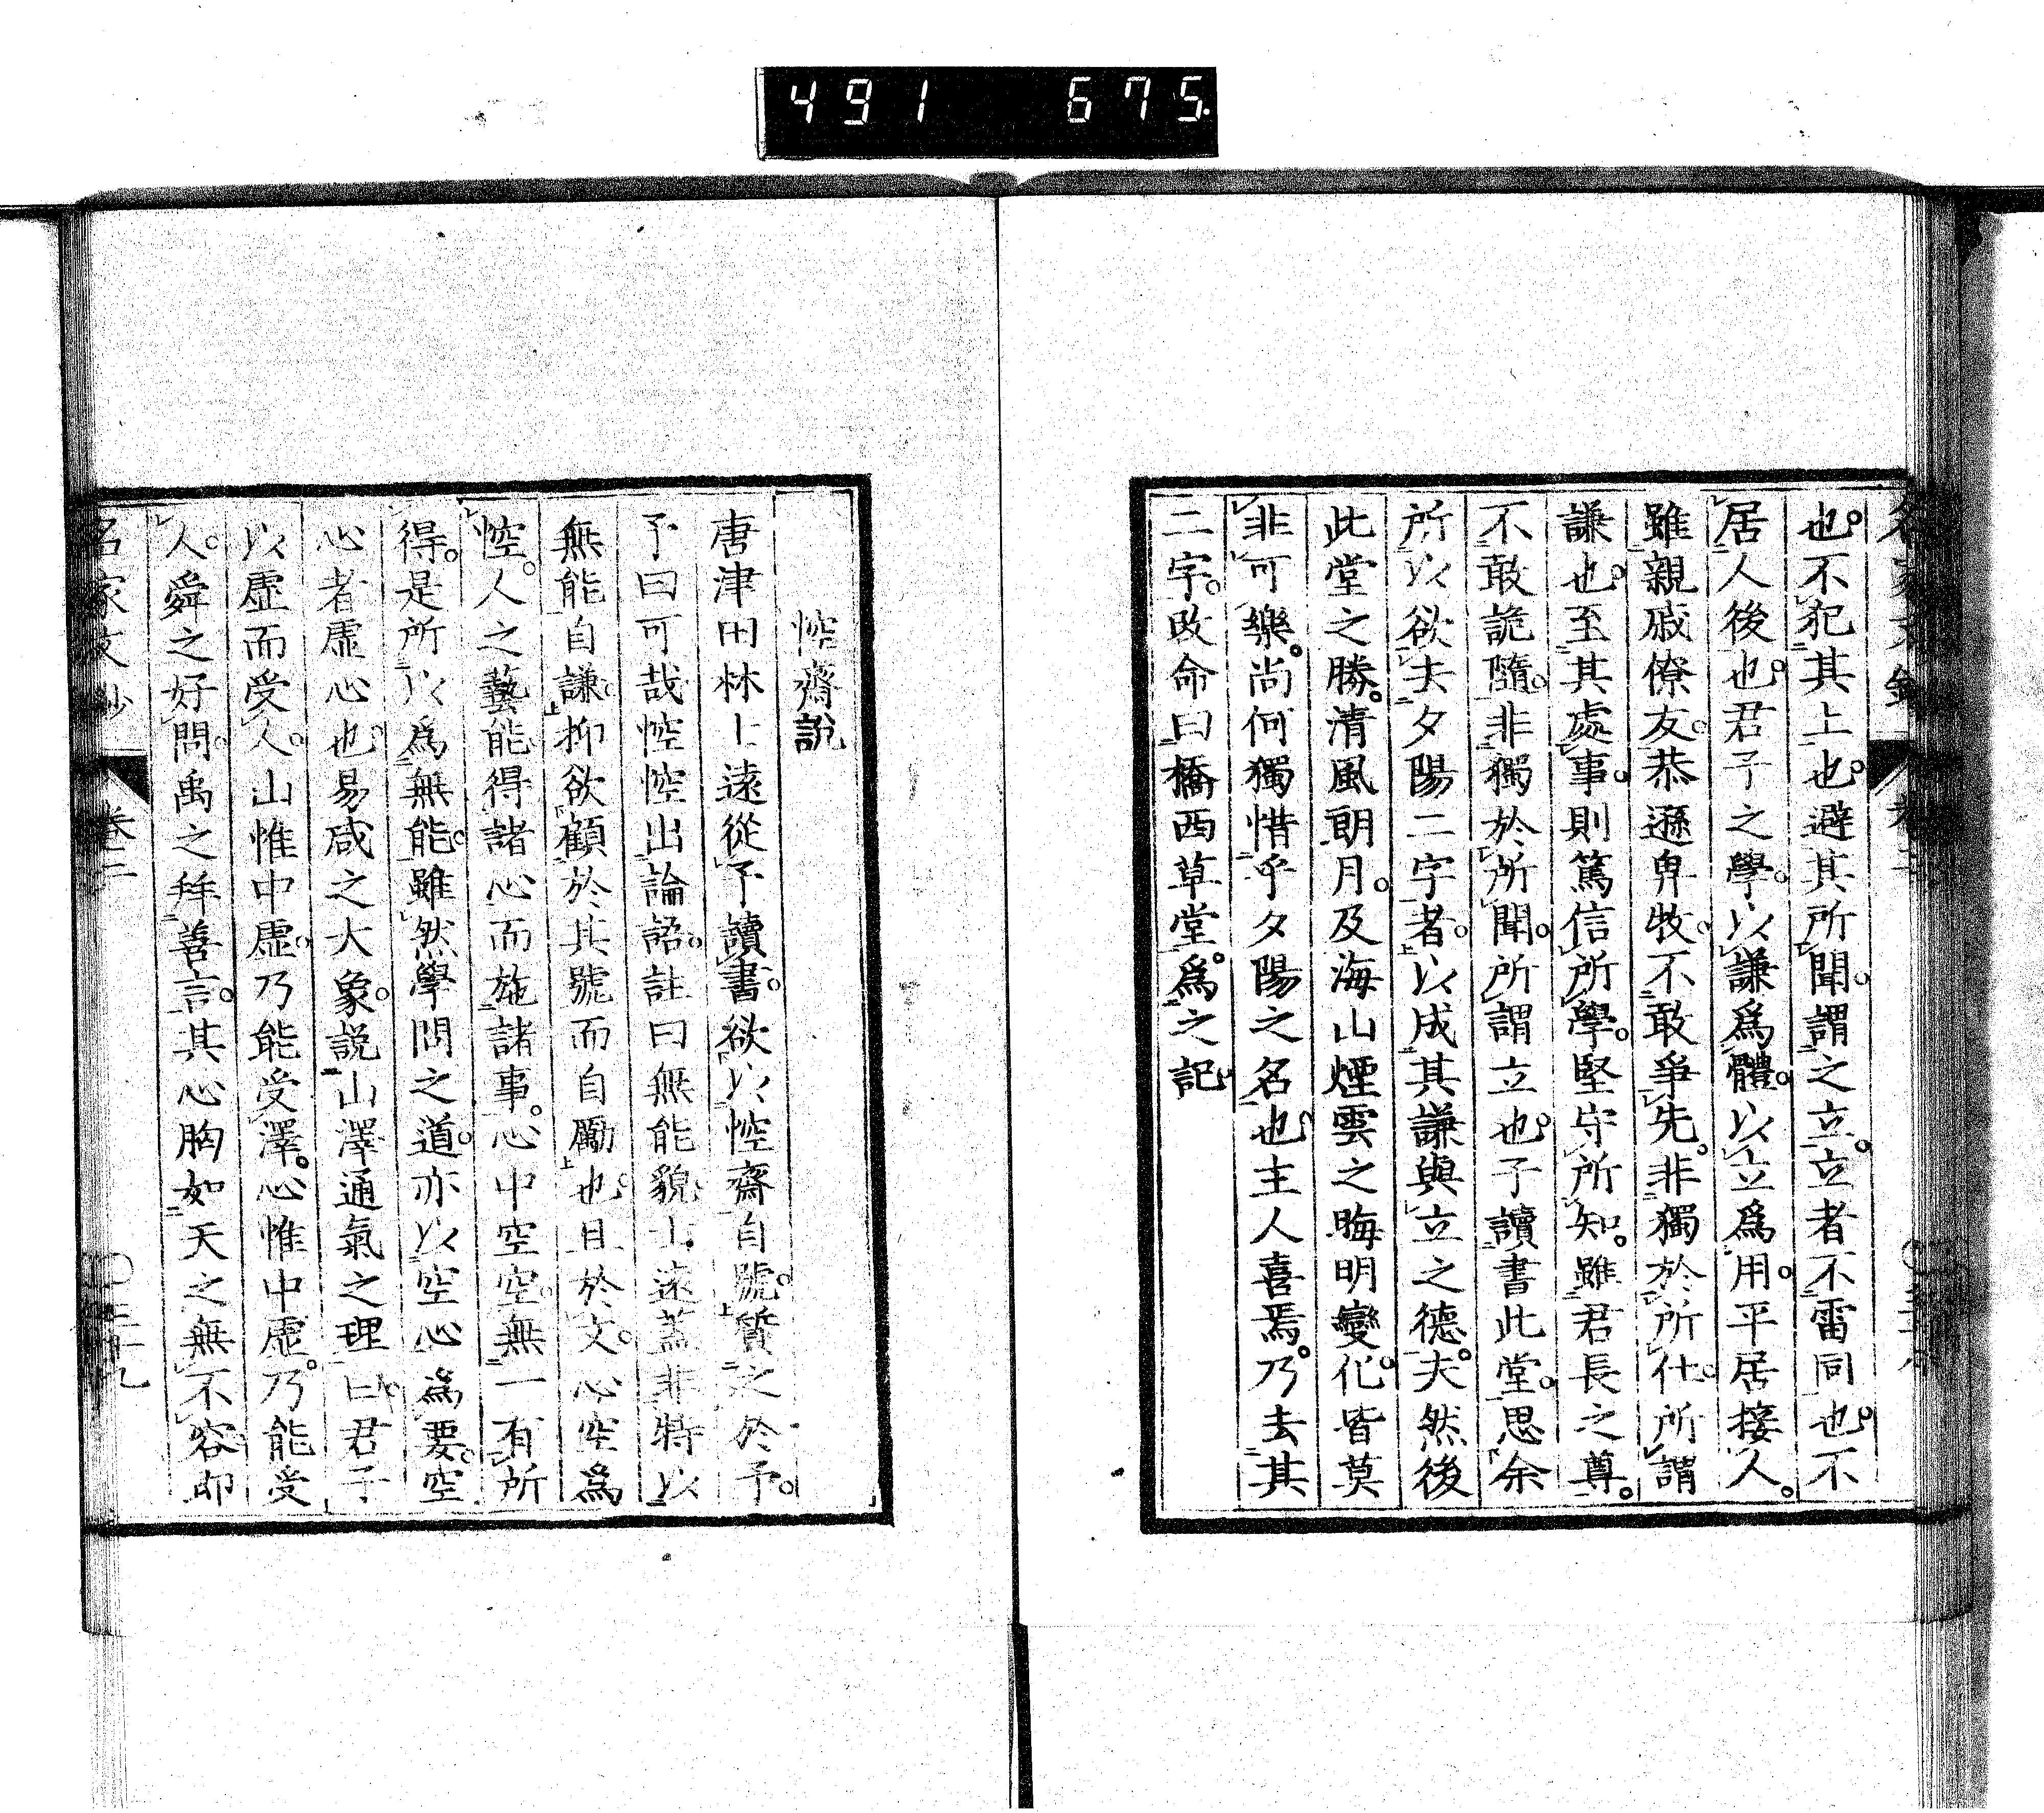 491 675
名家文鈔
也不犯其上也避其所聞謂之立立者不雷同也不
居人後也君子之學以謙爲體以立爲用平居接人
雖親戚僚友恭遜卑牧不敢爭先非獨於所仕所謂
謙也至其處事則篤信所學堅守所知雖君長之尊
不敢詭隨非獨於所聞所謂立也子讀書此堂思余
所以欲去夕陽二字者以成其謙與立之德夫然後
此堂之勝清風朗月及海山煙雲之晦明變化皆莫
非可樂尚何獨惜乎夕陽之名也主人喜焉乃去其
二字改命曰橋西草堂爲之記
悾齋說
唐津田林士遠從予讀書欲以悾齋自號質之於予
予曰可哉悾悾出論語註曰無能貌士遠蓋非特以
無能自謙抑欲顧於其號而自勵也且於文心空爲
悾人之藝能得諸心而施諸事心中空空無一有所
得是所以爲無能雖然學問之道亦以空心爲要空
心者虛心也易咸之大象說山澤通氣之理曰君子
以虛而受人山惟中虛乃能受澤心惟中虛乃能受
人舜之好問禹之拜善言其心胸如天之無不容即
名家文鈔 卷二 〇三十九